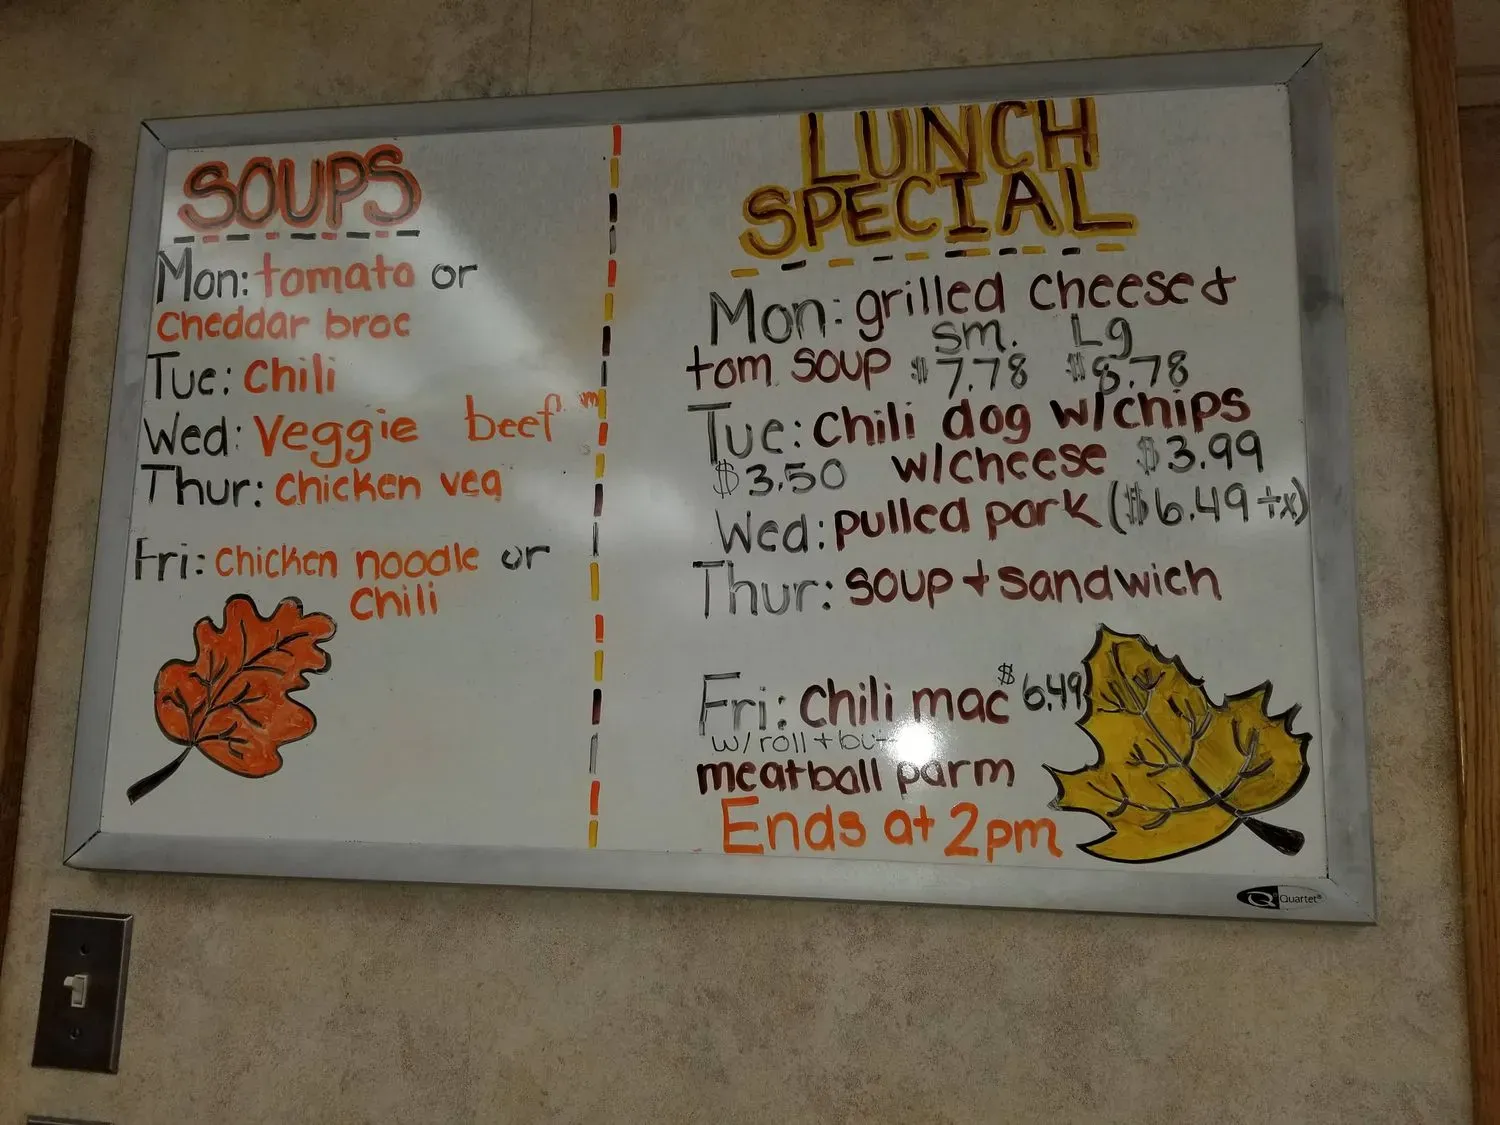 SOUPS
Mon: tomato or
cheddar broc
Tue: chili
Wed: Veggie beef
Thur: chicken veg
Fri: chicken noodle or
chili
LUNCH
SPECIAL
Mon: grilled cheese &
sm. Lg
tom soup $7.78 $8.78
Tue: chili dog w/chips
$3.50 w/cheese $3.99
Wed: pulled pork ($6.49 + tx)
Thur: soup + sandwich
Fri: chili mac $6.49
w/ roll +
meatball parm
Ends at 2pm
Quartet®